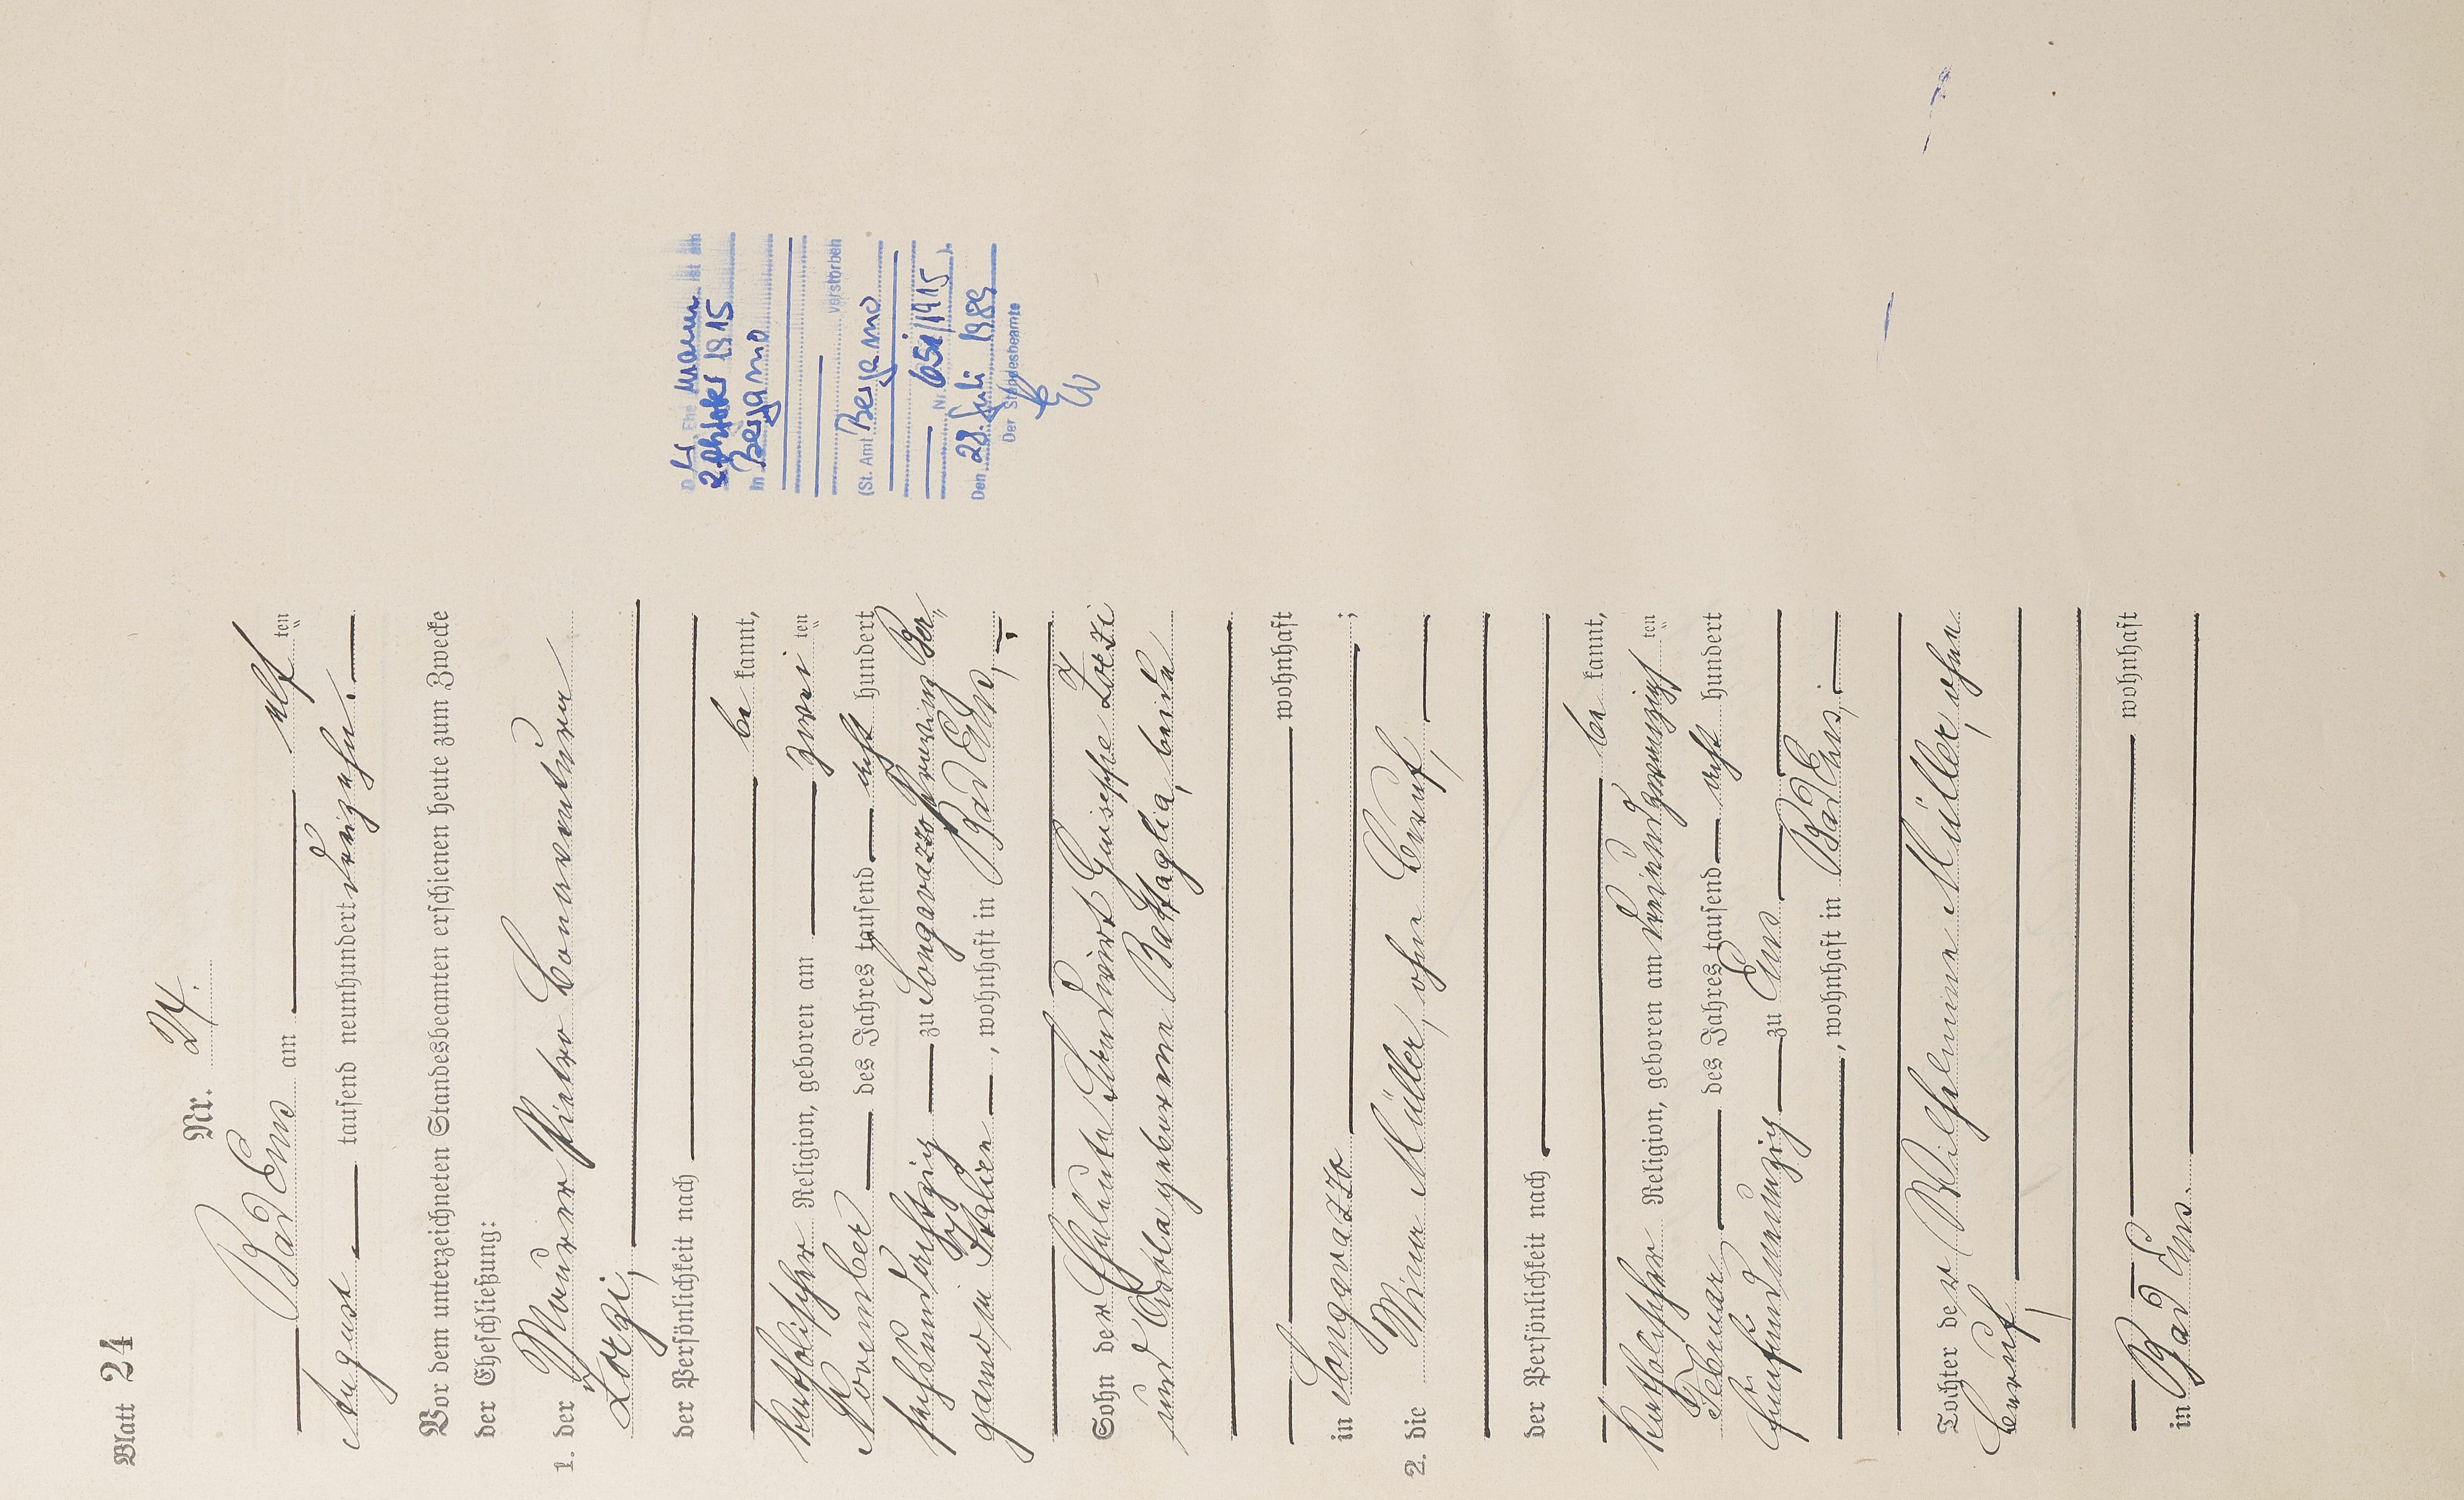 Blatt 24
Nr. 24.
Bad Ems am elf ten
August tausend neunhundert dreizehn.
Vor dem unterzeichneten Standesbeamten erschienen heute zum Zwecke
der Eheschließung:
1. der Maurer Pietro Bonaventura
Zorzi,
der Persönlichkeit nach
be kannt,
katholischer Religion, geboren am zwei ten
November des Jahres tausend acht hundert
sechsundachtzig zu Songavazzo Provinz Ber-
gamo in Italien, wohnhaft in Bad Ems,
Sohn der Eheleute Landwirt Guiseppe Zorzi
und geborene Battaglia, beide
wohnhaft
in Songavazzo ;
2. die Mina Müller, ohne Beruf,
der Persönlichkeit nach
be kannt,
katholischer Religion, geboren am dreiundzwanzigsten
Februar des Jahres tausend acht hundert
fünfundneunzig zu Ems
, wohnhaft in Bad Ems,
Tochter der Wilhelmine Müller, ohne
Beruf,
wohnhaft
in Bad Ems.
D er Ehemann ist am
2. Oktober 1915
in Bergamo
verstorben
(St. Amt Bergamo
Nr. 651/1915).
Den 28. Juli 1989
Der Standesbeamte